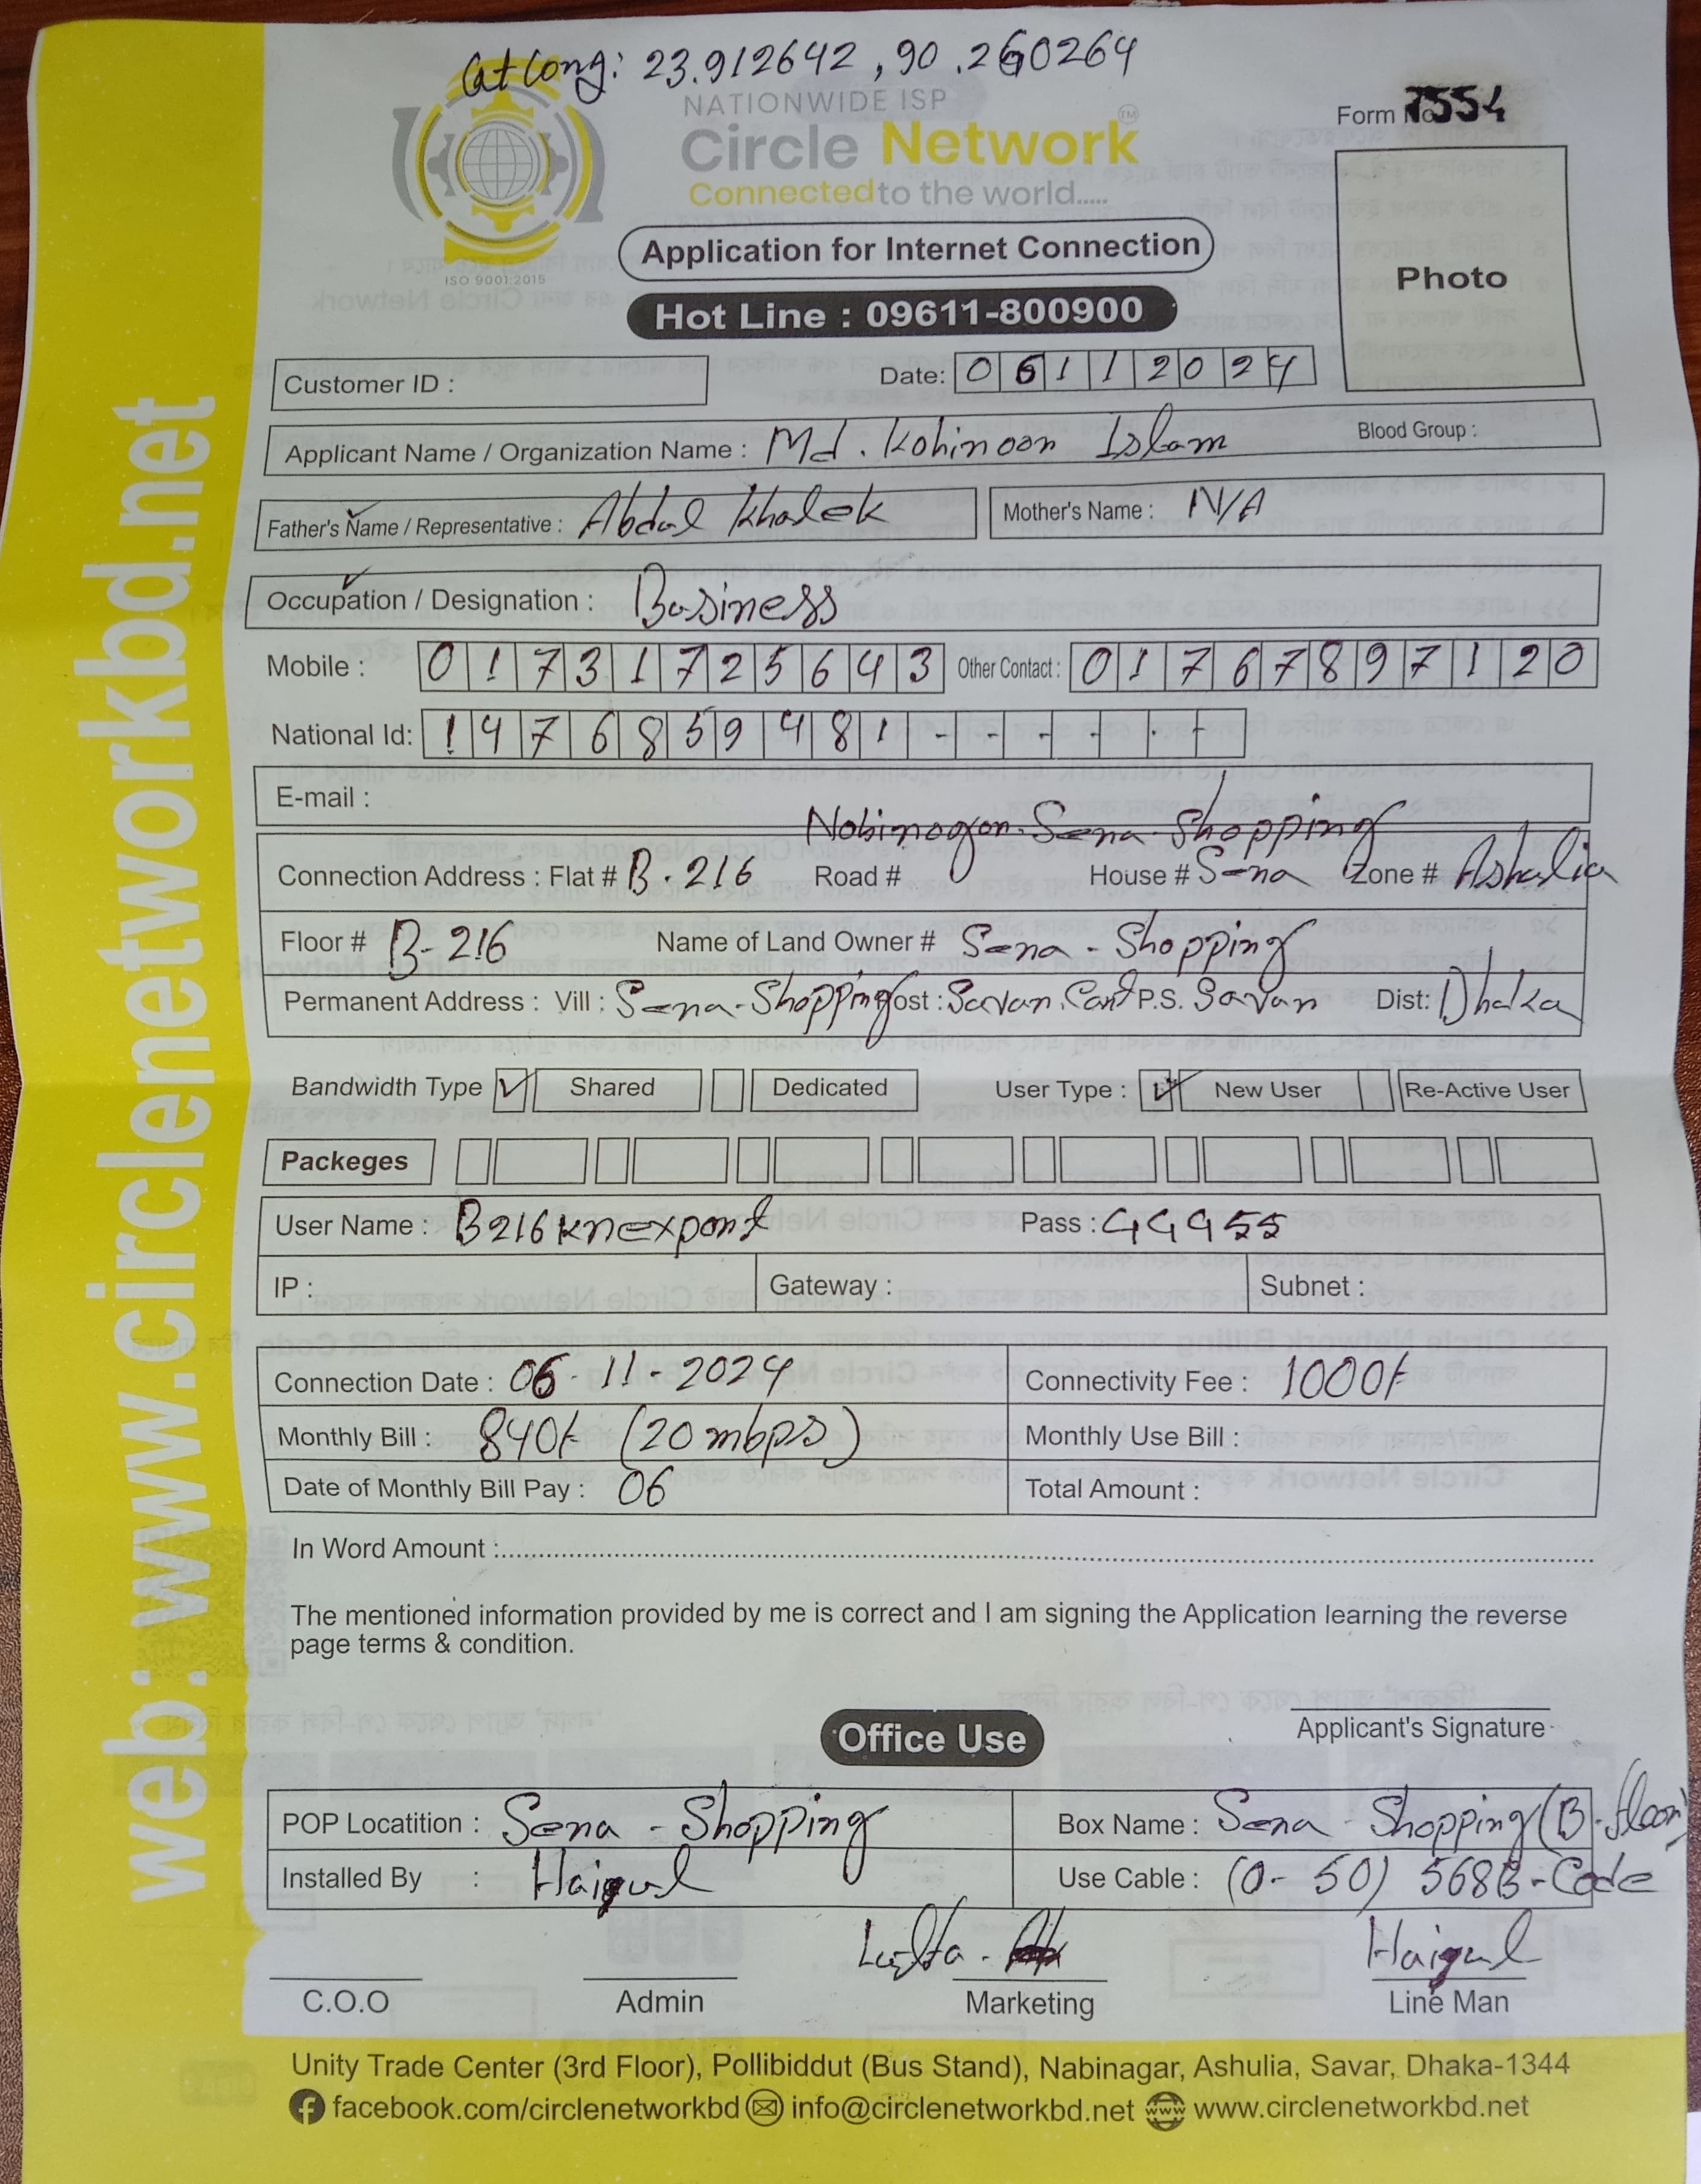 Lat Long: 23.912642, 90.260264
NATIONWIDE ISP
Circle Network™
Connected to the world.....
ISO 9001:2015
Form No 7554
Application for Internet Connection
Photo
Hot Line : 09611-800900
Customer ID :
Date: 06112024
Applicant Name / Organization Name : Md. Kohinoor Islam Blood Group :
Father's Name / Representative : Abdul Khalek Mother's Name : N/A
Occupation / Designation : Business
Mobile : 01731725643 Other Contact : 01767897120
National Id: 1476859481 - - - - - -
E-mail :
Nobinogor. Sena Shopping
Connection Address : Flat # B-216 Road # House # Sena Zone # Ashulia
Floor # B-216 Name of Land Owner # Sena - Shopping
Permanent Address : Vill : Sena-Shopping Post : Savar. Cant P.S. Savar Dist: Dhaka
Bandwidth Type ✓ Shared Dedicated User Type : ✓ New User Re-Active User
Packeges
User Name : B216knexport Pass : 449455
IP : Gateway : Subnet :
Connection Date : 06-11-2024 Connectivity Fee : 1000/-
Monthly Bill : 840/- (20 mbps) Monthly Use Bill :
Date of Monthly Bill Pay : 06 Total Amount :
In Word Amount :
The mentioned information provided by me is correct and I am signing the Application learning the reverse
page terms & condition.
Applicant's Signature
Office Use
POP Locatition : Sena - Shopping Box Name : Sena Shopping (B-floor)
Installed By : Haigul Use Cable : (0-50) 568B-Code
Haigul
C.O.O Admin Marketing Line Man
Unity Trade Center (3rd Floor), Pollibiddut (Bus Stand), Nabinagar, Ashulia, Savar, Dhaka-1344
facebook.com/circlenetworkbd info@circlenetworkbd.net www www.circlenetworkbd.net
web: www.circlenetworkbd.net